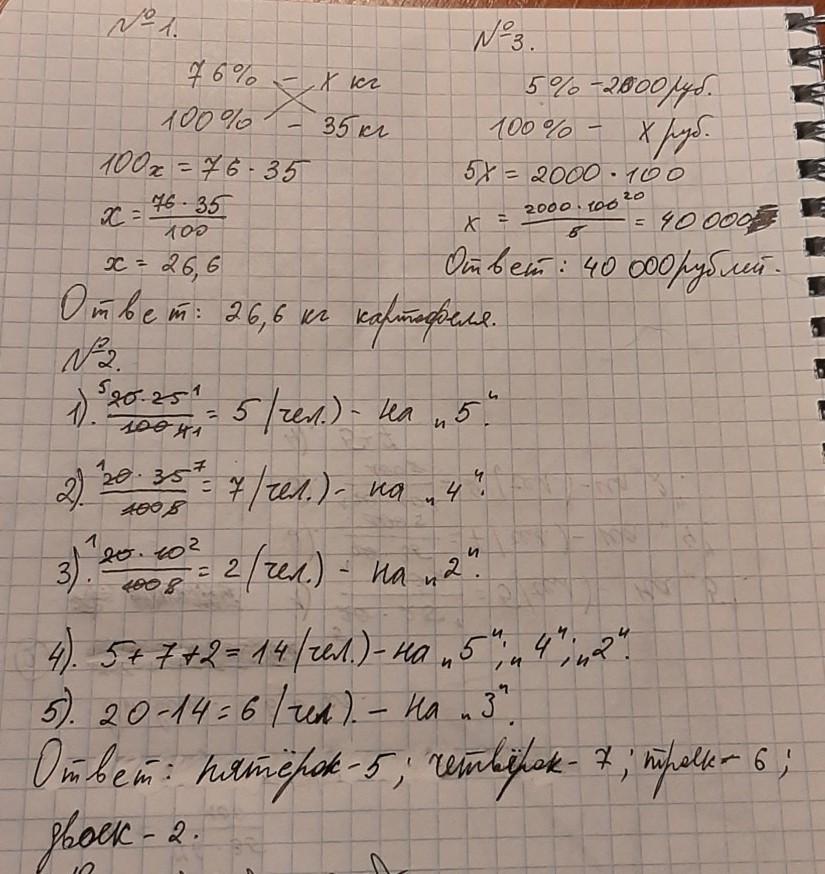 №1.
76% – x кг
100% – 35 кг
100x = 76 · 35
x = 76 · 35 / 100
x = 26,6
Ответ: 26,6 кг картофеля.
№3.
5% – 2000 руб.
100% – x руб.
5x = 2000 · 100
x = 2000 · 100 20 / 5 = 40 000
Ответ: 40 000 рублей.
№2.
1). 5 20 · 25 1 / 100 4 1 = 5 (чел.) – на „5“.
2). 1 20 · 35 7 / 100 5 = 7 (чел.) – на „4“.
3). 1 20 · 10 2 / 100 5 = 2 (чел.) – на „2“.
4). 5 + 7 + 2 = 14 (чел.) – на „5“; „4“; „2“.
5). 20 – 14 = 6 (чел). – на „3“.
Ответ: пятёрок – 5; четвёрок – 7; троек – 6;
двоек – 2.